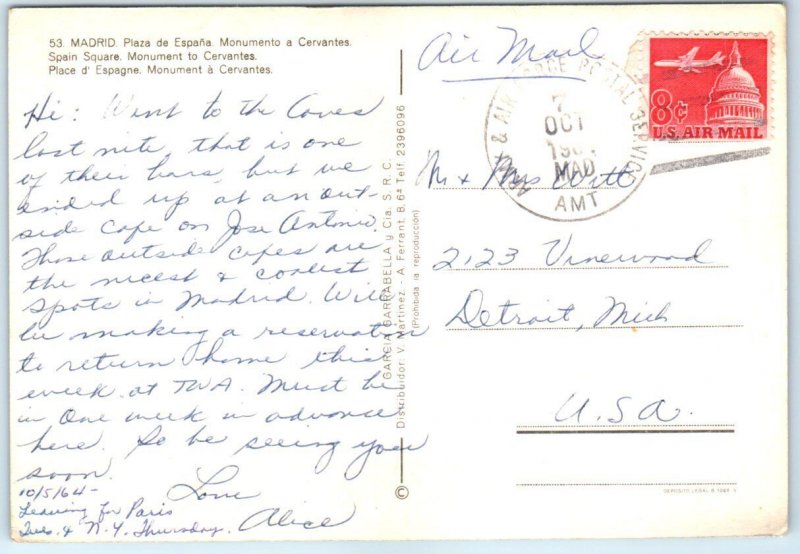 53. MADRID. Plaza de España. Monumento a Cervantes.
Spain Square. Monument to Cervantes.
Place d' Espagne. Monument à Cervantes.
Hi: Went to the Caves
last nite, that is one
of their bars, but we
ended up at an out-
side cafe on Jose Antonio.
Those outside cafes are
the nicest & coolest
spots in Madrid. Will
be making a reservation
to return home this
week at TWA. Must be
in one week in advance
here. So be seeing you
soon.
Love
Alice
10/5/64-
Leaving for Paris
Tues. & N.Y. Thursday.
GARCIA GARRABELLA y Cia. S. R. C.
Distribuidor: V. Martinez. - A. Ferrant, 8. 6ª Telf. 2396096
(Prohibida la reproducción)
©
Air Mail
ARMY & AIR FORCE POSTAL SERVICE
7
OCT
MAD
AMT
8¢
U.S. AIR MAIL
Mr & Mrs
2123 Vinewood
Detroit, Mich
U.S.A.
DEPOSITO LEGAL B.